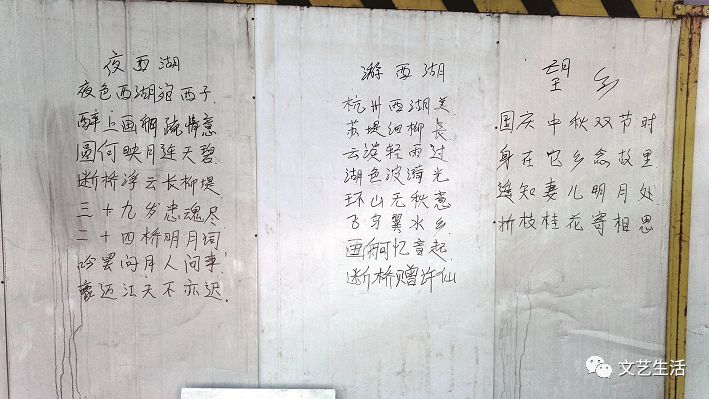 夜西湖
夜色西湖宛西子
醉上画舫疏情意
圆荷映月连天碧
断桥浮云长柳堤
三十九岁忠魂尽
二十四桥明月词
吟罢问月人问李
豪迈江天不亦迟
游西湖
杭州西湖美
苏堤细柳长
云淡轻雨过
湖色波漪光
环山无秋意
飞身翼水乡
画舸忆音起
断桥赠许仙
望乡
国庆中秋双节时
身在它乡念故里
遥知妻儿明月处
折枝桂花寄相思
文艺生活